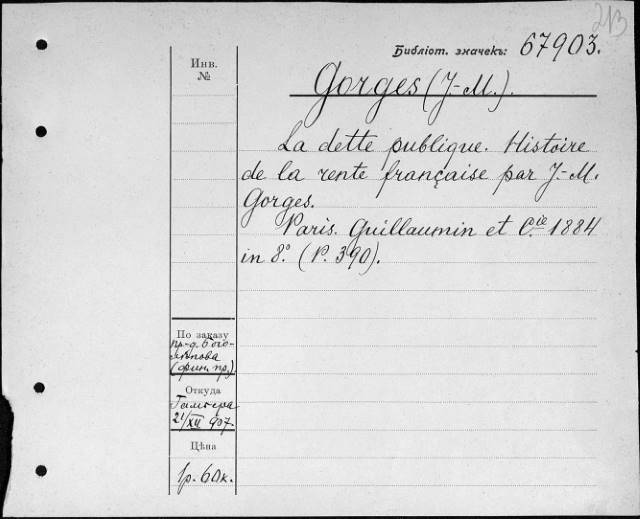 213
Библіот. значекъ: 67903.
Инв.
№
Gorges (J.-M.).
La dette publique. Histoire
de la rente française par J.-M.
Gorges.
Paris. Guillaumin et Cie. 1884
in 8.° (P. 390).
По заказу
пр-д. Бого-
лѣпова
(фин. пр.)
Откуда
21/XII 907
Цѣна
1р. 60к.